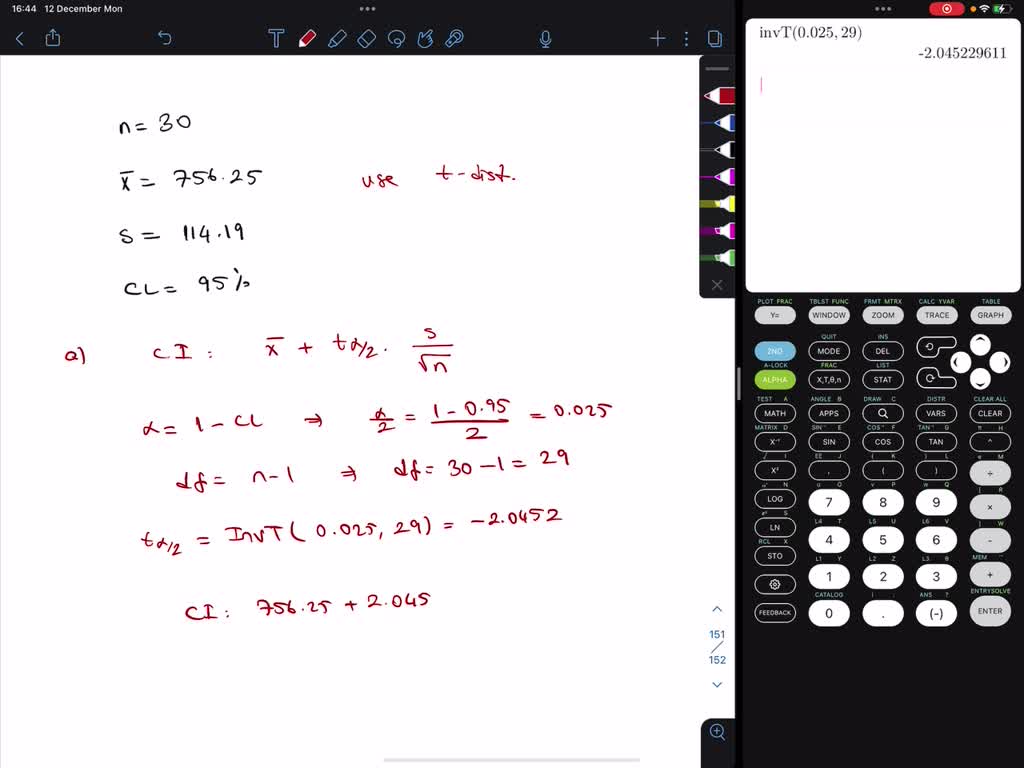 16:44 12 December Mon
invT(0.025, 29)
-2.045229611
n = 30
x̄ = 756.25 use t-dist.
s = 114.19
CL = 95%
a) CI : x̄ + tα/2 · s/√n
α = 1 - CL ⇒ α/2 = (1 - 0.95)/2 = 0.025
df = n-1 ⇒ df = 30-1 = 29
tα/2 = InvT( 0.025, 29) = -2.0452
CI : 756.25 + 2.045
151
152
PLOT FRAC TBLST FUNC FRMT MTRX CALC YVAR TABLE
Y= WINDOW ZOOM TRACE GRAPH
QUIT INS
2ND MODE DEL
A-LOCK FRAC LIST
ALPHA X,T,θ,n STAT
TEST A ANGLE B DRAW C DISTR CLEAR ALL
MATH APPS VARS CLEAR
MATRIX D SIN⁻¹ E COS⁻¹ F TAN⁻¹ G π H
X⁻¹ SIN COS TAN ^
√ I EE J { K } L e M
X² , ( ) ÷
N u O v P w Q [ R
LOG 7 8 9 ×
S L4 T L5 U L6 V ] W
LN 4 5 6 -
RCL X L1 Y L2 Z L3 θ MEM "
STO 1 2 3 +
CATALOG i : ANS ? ENTRYSOLVE
FEEDBACK 0 . (-) ENTER